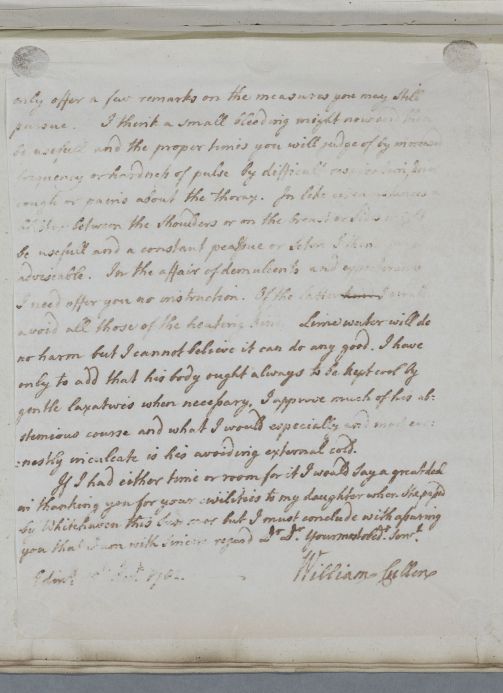 only offer a few remarks on the measures you may still
pursue. I think a small bleeding might now and then
be usefull and the proper times you will judge of by
frequency or hardness of pulse by difficult respiration
cough or pains about the thorax. In like circumstances a
blister between the shoulders or on the breast or sides might
be usefull and a constant peassue or Seton I think
adviseable. In the affair of demulcents and expectorants
I need offer you no instruction. Of the latter I would
avoid all those of the heating kind. Lime water will do
no harm but I cannot believe it can do any good. I have
only to add that his body ought always to be kept cool by
gentle laxatives when necessary, I approve much of his ab-
stemious course and what I would especially and most ear-
:nestly inculcate is his avoiding external cold.
If I had either time or room for it I would say a great deal
in thanking you for your civilities to my daughter when she passed
by Whitehaven this but I must conclude with assuring
you that I am with sincere regard Dr Sr Your most obedt Servt
Edinr
William Cullen